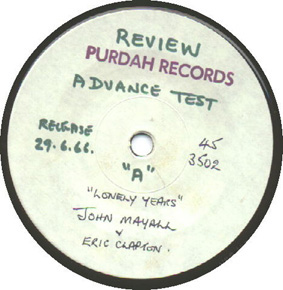 REVIEW
PURDAH RECORDS
ADVANCE TEST
RELEASE
29.6.66.
45
3502
"A"
"LONELY YEARS"
JOHN MAYALL
&
ERIC CLAPTON.